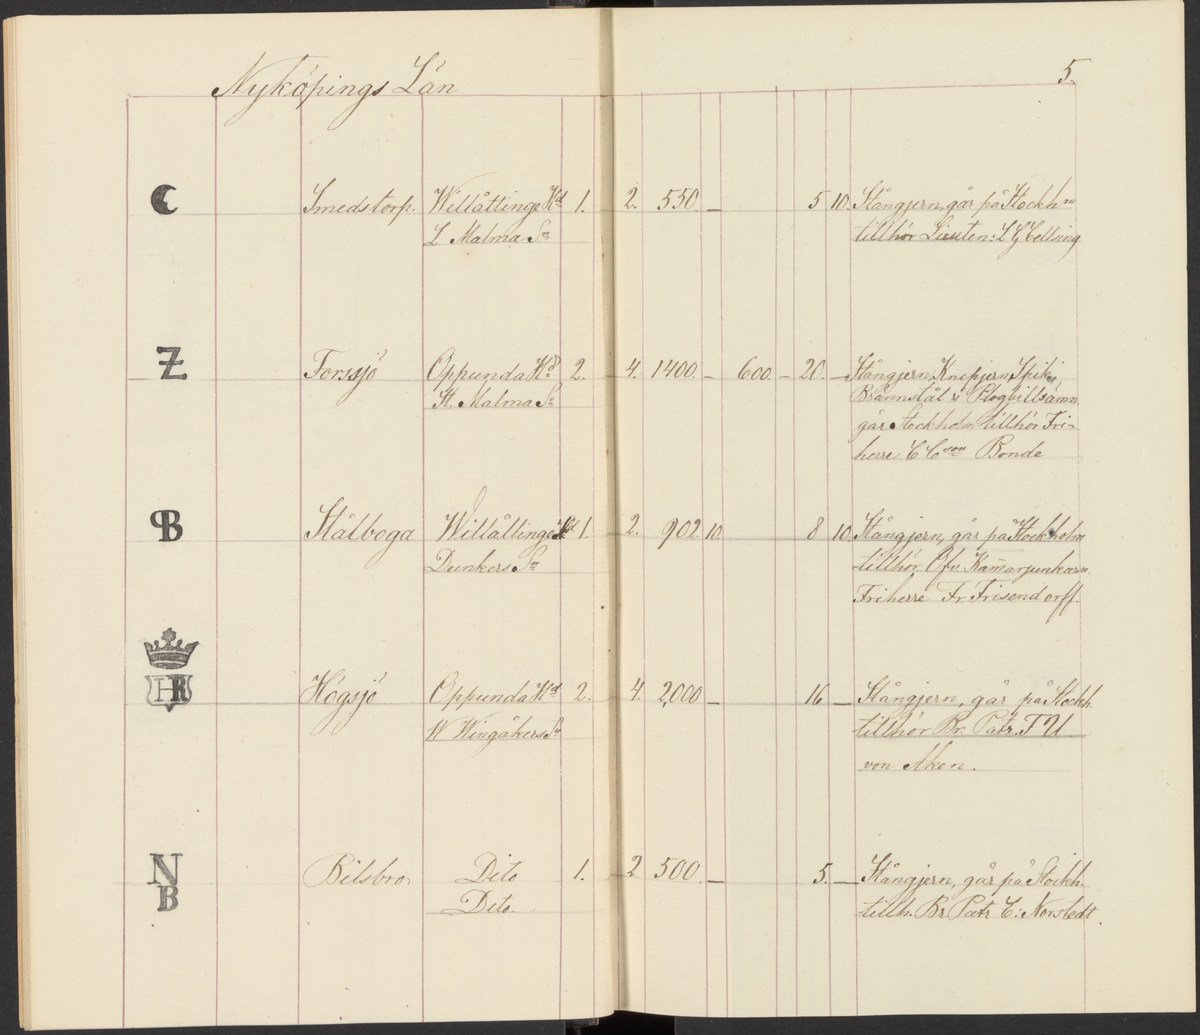 Nyköpings Län
5.
Smedstorp. Willåttinge Hd 1. 2. 550 — 5 10 Stångjern, går på Stockhm
L Malma Sn tillhör Lieuten: L G Cellsing
Z Forssjö Oppunda Hd 2. 4. 1400 — 600 — 20. — Stångjern, Knipjern, Spik,
St. Malma Sn Brännstål & Plogbillsämn
går Stockholm tillhör Fri-
herre C C son Bonde
B Stålboga Willåttinge Hd 1. 2. 902. 10. 8 10 Stångjern, går på Stockholm
Dunkers Sn tillhör Öfv. Kamarjunkarn
Friherre Fr. Frisendorff.
HR Högsjö Oppunda Hd 2. 4. 2,000 — 16 — Stångjern, går på Stockh.
W Wingåkers Sn tillhör Br. Patr. T U
von Aken.
N Bilsbro Dito 1. 2 500. — 5. — Stångjern, går på Stockh.
B Dito. tillh. Br Patr C: Norstedt.